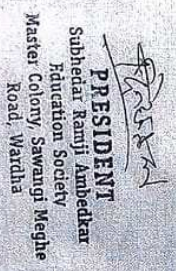 PRESIDENT
Subhedar Ramji Ambedkar
Education Society
Master Colony, Sawangi Meghe
Road, Wardha